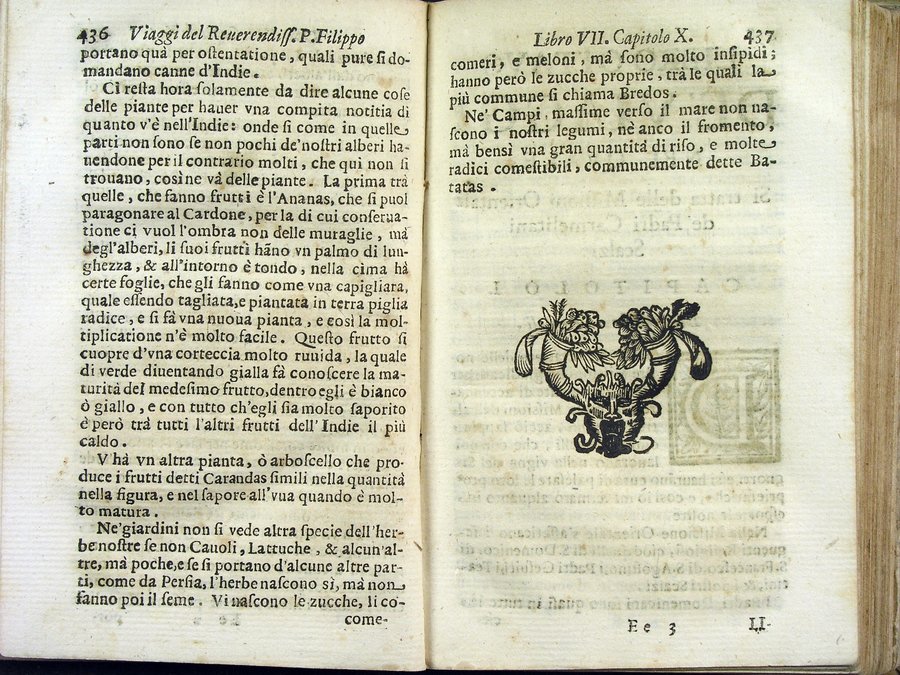 436 Viaggi del Reuerendiſſ. P. Filippo
portano quà per oſtentatione, quali pure ſi do-
mandano canne d'Indie.
Ci reſta hora ſolamente da dire alcune coſe
delle piante per hauer vna compita notitia di
quanto v'è nell'Indie: onde ſi come in quelle
parti non ſono ſe non pochi de'noſtri alberi ha-
uendone per il contrario molti, che quì non ſi
trouano, così ne và delle piante. La prima trà
quelle, che fanno frutti è l'Ananas, che ſi puol
paragonare al Cardone, per la di cui conſerua-
tione ci vuol l'ombra non delle muraglie, mà
degl'alberi, li ſuoi frutti hãno vn palmo di lun-
ghezza, & all'intorno è tondo, nella cima hà
certe foglie, che gli fanno come vna capigliara,
quale eſſendo tagliata, e piantata in terra piglia
radice, e ſi fà vna nuoua pianta, e così la mol-
tiplicatione n'è molto facile. Queſto frutto ſi
cuopre d'vna corteccia molto ruuida, la quale
di verde diuentando gialla fà conoſcere la ma-
turità del medeſimo frutto, dentro egli è bianco
ò giallo, e con tutto ch'egli ſia molto ſaporito
è però trà tutti l'altri frutti dell'Indie il più
caldo.
V hà vn altra pianta, ò arboſcello che pro-
duce i frutti detti Carandas ſimili nella quantità
nella figura, e nel ſapore all'vua quando è mol-
to matura.
Ne'giardini non ſi vede altra ſpecie dell'her-
be noſtre ſe non Cauoli, Lattuche, & alcun'al-
tre, mà poche, e ſe ſi portano d'alcune altre par-
ti, come da Perſia, l'herbe naſcono sì, mà non
fanno poi il ſeme. Vi naſcono le zucche, li co-
come-
Libro VII. Capitolo X. 437
comeri, e meloni, mà ſono molto inſipidi;
hanno però le zucche proprie, trà le quali la
più commune ſi chiama Bredos.
Ne' Campi, maſſime verſo il mare non na-
ſcono i noſtri legumi, nè anco il fromento,
mà bensì vna gran quantità di riſo, e molte
radici comeſtibili, communemente dette Ba-
tatas.
E e 3 LI-